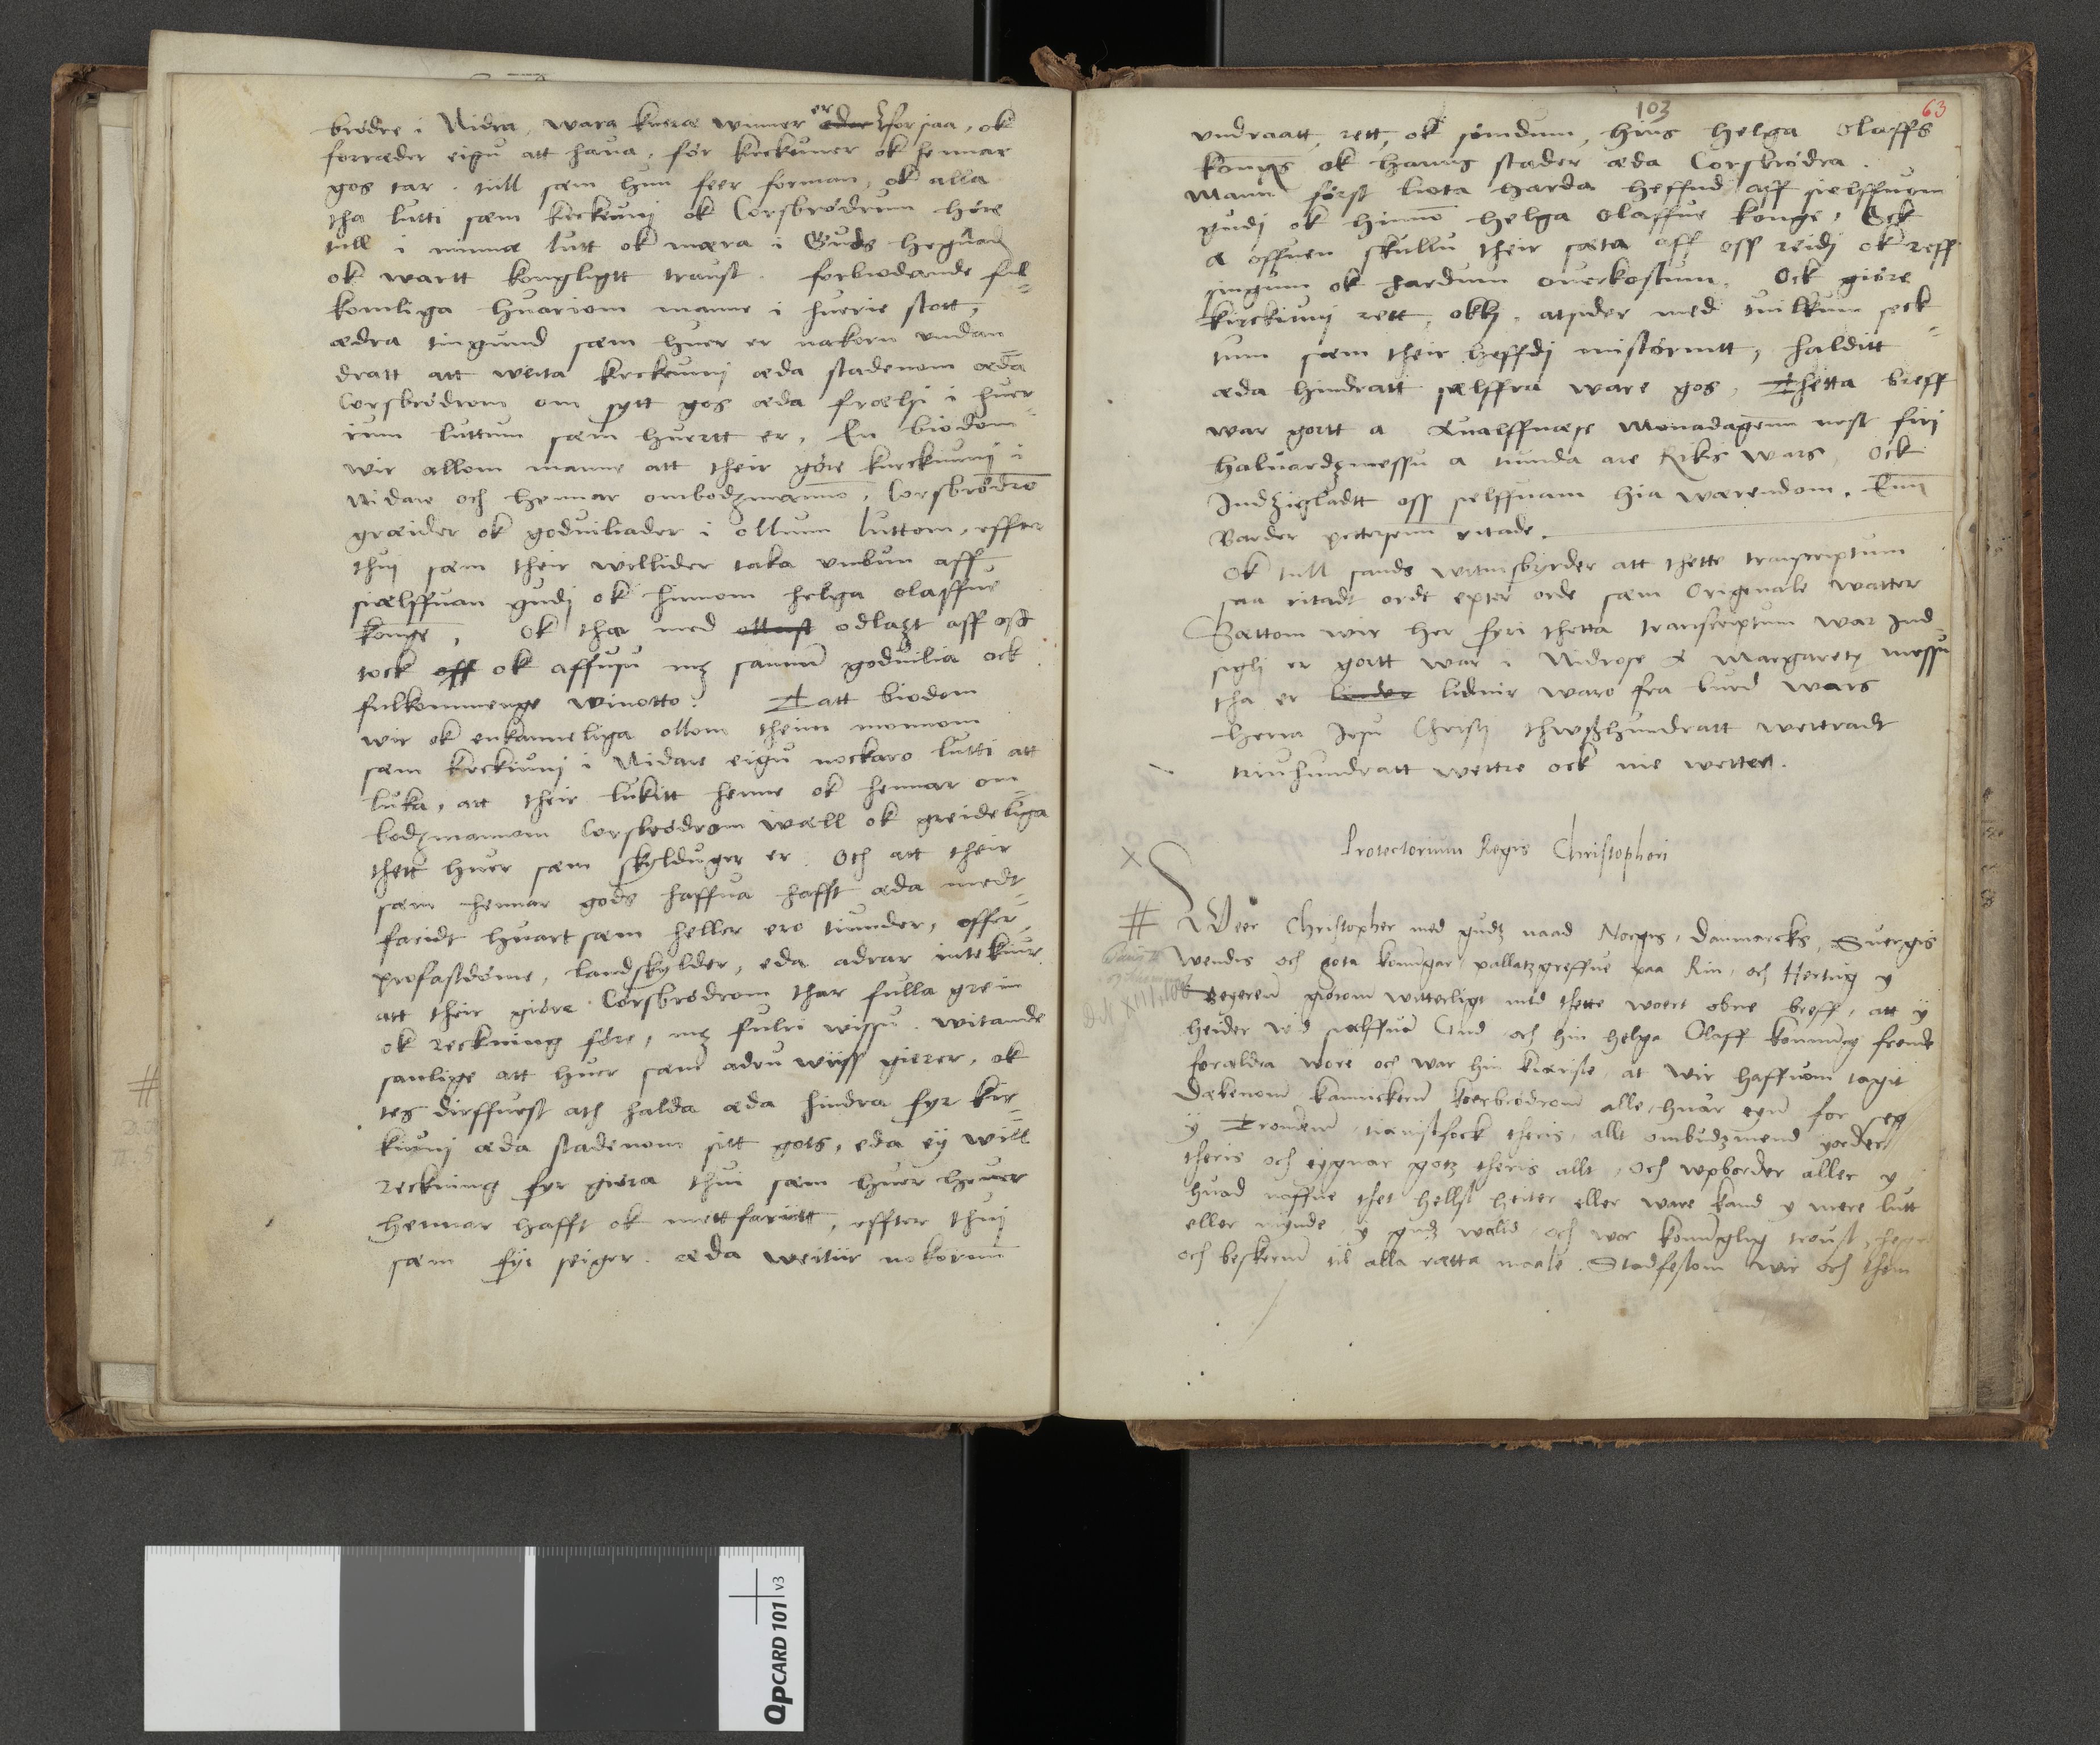 brödre i Nidra, wara kuerae winner er forsaa, ok
forræder eigu att haua, för kerkeuner ok hennar
gos tar. till sæm hun feer forman, ok alla
tha lutti sæm kerkeunj ok Corsbrödrum höre
till i minna lutt ok mæra i Guds hegnad
ok wartt kongligtt traust. forbiodande ful=
komliga huariom manne i huerie stott,
ædra tingund sæm huer er nakorn undan=
dratt att weita kerkeunj æda stadenom æda
Corsbrödrom om sytt gos æda frælsi i huer=
ium luttum sæm huertt er, En biodom
wir allom manne att their göre kurckiunj i
Nidare och hennar ombodzmanno, Corsbrödro
græider ok goduiliader i ollum luttom, effter
thuj sæm their willider taka umbun aff
siælffuan gudj ok hinom helga olaffue
konge, Ok thar med odlazt aff oss
tock ok affusu mz sannu goduilia ock
fulkommenge winotto? That biodom
wir ok enkanneliga ollom theim monnom
sæm kerkiunj i Nidare eigu nockaro lutti att
luka, att their lukitt henne ok hennar om=
bodzmannom Corsbrödrom wæll ok greideliga
thett huer sæm skylduger er. Och att their
sæm hennar gods haffua hafft æda medt=
faridt huart sæm heller ero tiunder, offer,
profastdöme, landskylder, eda adrar intekiur
att their giöre Corsbrödrom thar fulla grein
ok reckning före, mz fulri wissu. witande
sanlige att huer sæm adru wiiss giörer, ok
tes dirffuest ath halda æda hindra fyr kir=
kiunj æda stadenom sitt gots, eda ey will
reckning fyr giöra thui sæm huer heuer
hennar hafft ok mettfaritt, effter thuj
sæm fyr seiger. æda weitiir nokorum
103
63
undraatt, rett, ok sömdum, hins helga Olaffs
kongs ok hanns stader æda Corsbrödra.
Mann först liota harda heffnd aff sielffuom
gudj ok hinno helga Olaffue konge, Ock
a offuen skullu their sæta aff oss reidj ok reff
singum ok hardum ouerkostum. Ock giöre
kirckiunj rett, okkj. atsider med tuilkum seck=
tum sæm their heffdj mistörmtt, halditt
æda hindratt sielffra ware gos, Thetta breff
war gortt a Kualffnæse Monadagenn nest firi
Haluardzmessu a tiunda are Rikis wars, Ock
Indzigladtt oss sielffuam hia wærendom. Enn
Barder pettersenn ritade.
Ok till sands witnisbyrder att thette transcriptum
saa ritadt ordt epter orde sæm Originale watter
Sættom wir her fyri thetta transcriptum war Ind=
sigli er gortt war i Nidrose a Margaretz messu
tha er lidnir waro fra burd wars
herra Jesu Christj thwshundratt wettradt
triuhundratt wettre ock nie wetter.
Protectorium Regis Christopheri
X
# Weer Christopher med gudtz naad Norges, Danmarcks, Suergis
Wendis och gota konungar, pallatzgreffue paa Rin, och Hertug y
Beyeren giörom witterligt med thette woert obne breff, att y
heider wid sielffua Gud och hin helga Olaff konnung fremde
foreldra wore och war hin kiæriste, at wir haffuom tagit
Dækenom kannickom Korsbrödrom alle, huar eyn for seg
y Trondem, tienistfock theris, allt ombudzmend, gorder
theris och eygnar gotz theris allt, Och wpborder aller y
huad naffne thet hellst heiter eller ware kand y mere lutt
eller mynde y gudz wæld och wor konunglig troust, hegn
och beskerm til alla rætta maale. Stadfestom wir och them
DN XIII, 106
#